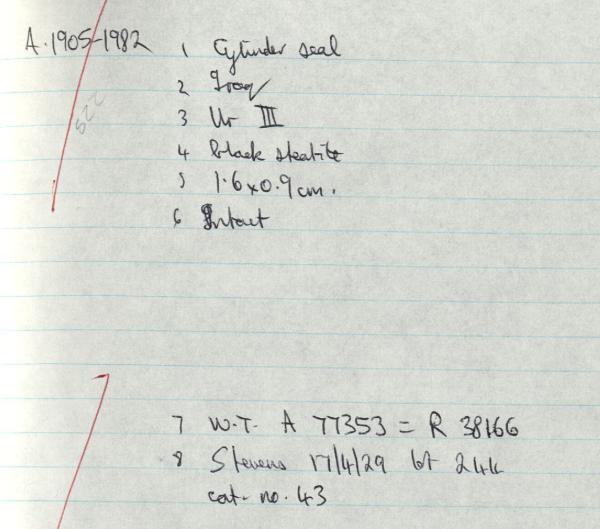 A.1905-1982 1 Cylinder seal
2 Iraq
3 Ur III
4 black steatite
5 1.6 x 0.9 cm.
6 Intact
7 W.T. A 77353 = R 38166
8 Stevens 17/4/29 lot 244
cat. no. 43